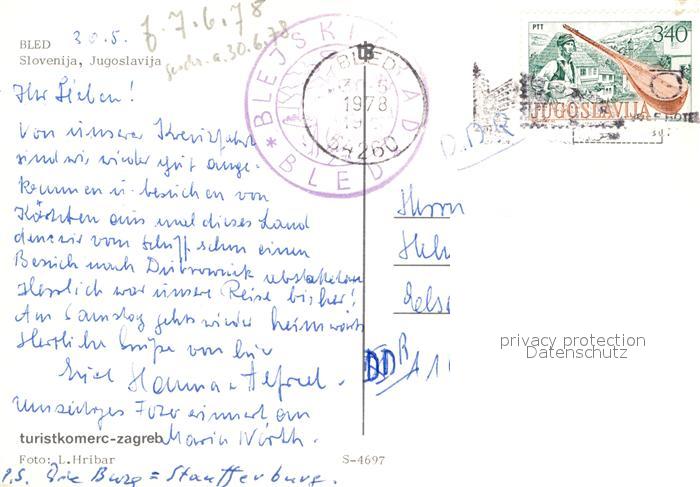 BLED 30.5.
Slovenija, Jugoslavija
f. 7.6.78
geschr. a. 30.6.78
BLEJSKI GRAD
BLED
BLED
1978
64260
PTT 340
JUGOSLAVIJA
DDR
Ihr Lieben!
Von unserer Kreuzfahrt
sind wir wieder gut ange-
kommen u. besuchen von
Kärnten aus mal dieses Land
dem wir vom Schiff schon einen
Besuch nach Dubrovnik abstatteten
Herrlich war unsere Reise bisher!
Am Samstag gehts wieder heimwärts
Herzliche Grüße von hier
Eure Hanna + Alfred.
Umseitiges Foto erinnert an
Maria Wörth.
Herrn
DDR
privacy protection
Datenschutz
turistkomerc-zagreb
Foto: L.Hribar
S-4697
P.S. Burg = Stauffenburg.